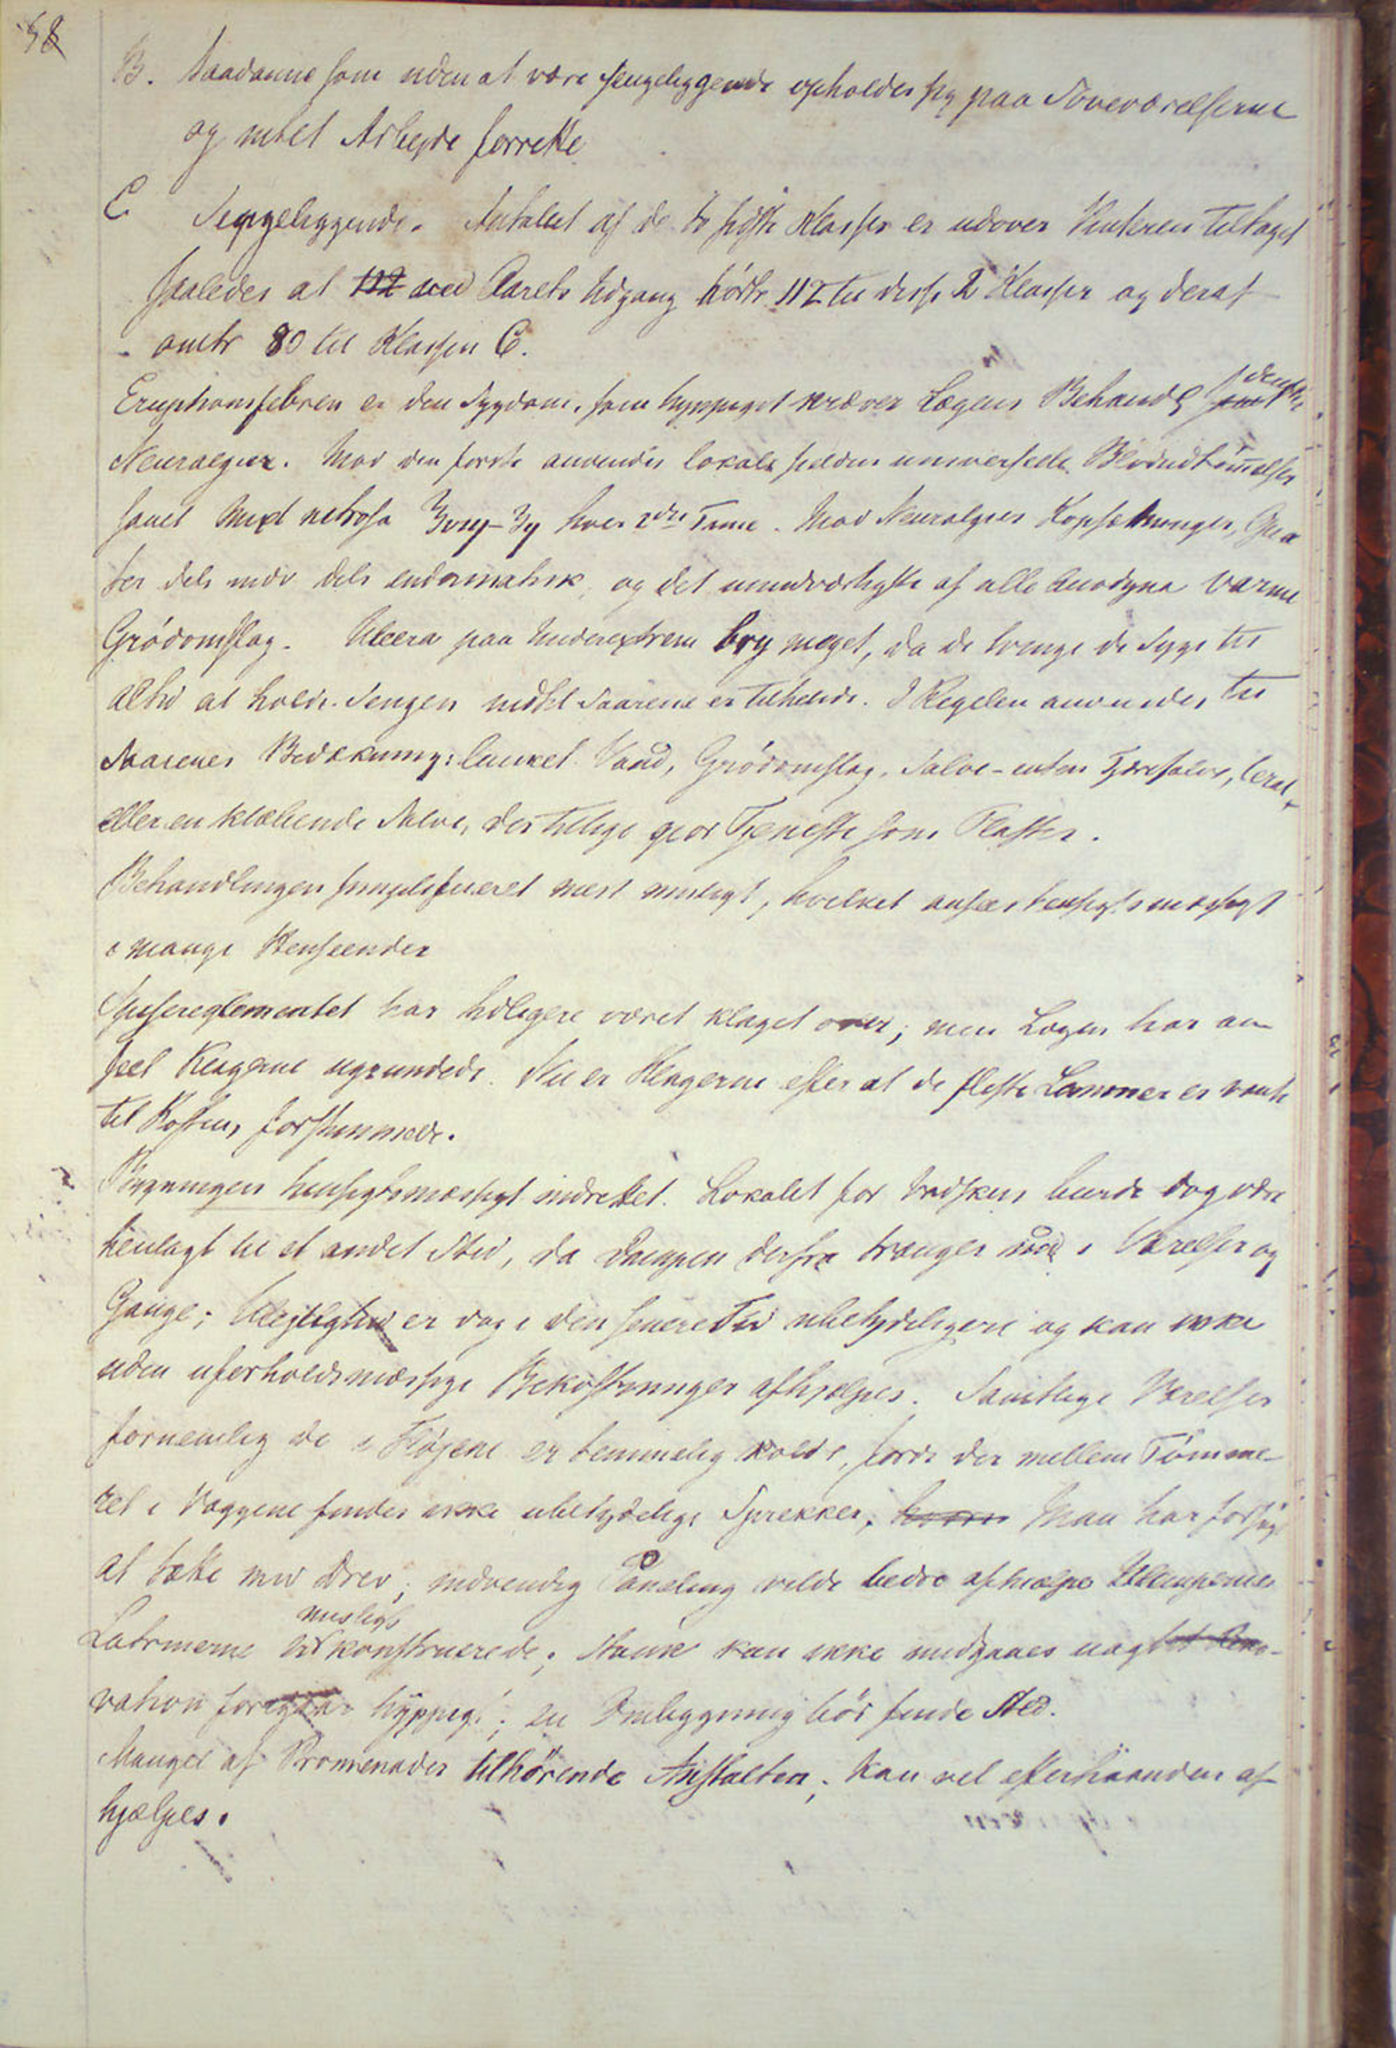 58
B. Saadanne som uden at være sengeliggende opholder sig paa Soveværelserne
og intet Arbejde forrette
C Sengeliggende. Antallet af de to sidste Klasser er udover Vinteren tiltaget
saaledes at 112 ved Aarets Udgang hørte 112 til disse 2 Klasser og deraf
omtr 80 til Klassen C.
Eruptionsfebren er den Sygdom, som hyppigst kræver Lægens Behandlg
Neuralgier. Mod den første anvendes lokale sjelden universelle Blodudtømmelser
samt Mixt nitrosa hver 2den Time. Mod Neuralgier Kopsætninger,
dels indv dels endermatisk, og det uundværligste af alle Anodyna varme
Grødomslag. Ulcera paa Underextrem bry meget, da de tvinge de Syge til
altid at holde Sengen indtil Saarene er tilhelede. I Regelen anvendes til
Saarenes Bedækning: lunket Vand, Grødomslag, Salve - enten Tjæresalve, Cerat
eller en klæbende Salve, der tillige gjør Tjeneste som Plaster.
Behandlingen simplificeret mest muligt, hvilket ansees hensigtsmæssigt
i mange Henseender
Spisereglementet har tidligere været klaget over; men Lægen har an-
seet Klagerne ugrundede. Nu er Klagerne efter at de fleste Lemmer er vante
til Kosten, forstummede.
Bygningen hensigtsmæssigt indrettet. Lokalet for Vadsken burde dog være
henlagt til et andet Sted, da Dampen derfra trænger ind i Værelser og
Gange; Ulejligheden er dog i den senere Tid ubetydeligere og kan ikke
uden uforholdsmæssige Bekostninger afhjælpes. Samtlige Værelser
fornemlig de i Fløjene er temmelig kolde, fordi der mellem Tømme-
ret i Væggene findes ikke ubetydelige Sprekker, Man har forsøgt
at tætte med Drev; indvendig Paneling vilde bedre afhjælpe Ulemperne
Latrinerne uheldigt konstruerede; Stank kan ikke undgaaes uagtet Reno-
vation foregaar hyppigt; en Ombygning bør finde Sted.
Mangel af Promenader tilhørende Anstalten; kan vel efterhaanden af-
hjælpes.